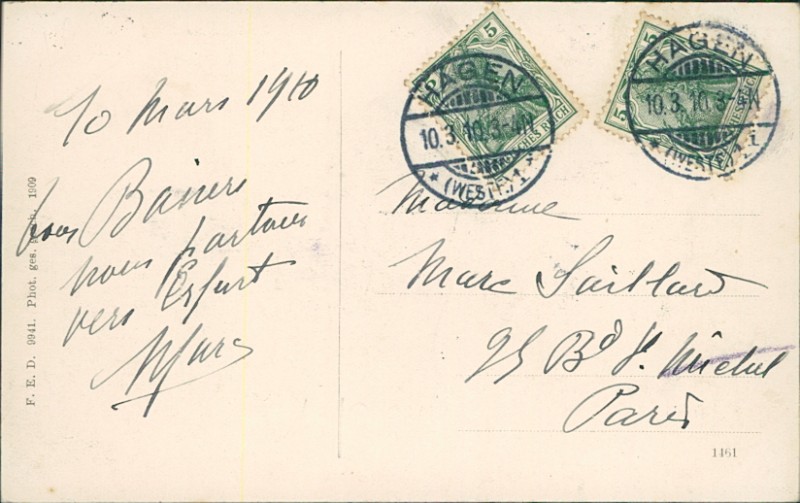 10 Mars 1910
bons Baisers
nous partons
vers Erfurt
Marc
F. E. D. 9941. Phot. ges. gesch. 1909
5
HAGEN
10.3.10.3-4N
* (WESTF.) 1 *
DEUTSCHES REICH
5
5
HAGEN
10.3.10.3-4N
* (WESTF.) 1 i
Madame
Marc Saillard
95 Bd St Michel
Paris
1461